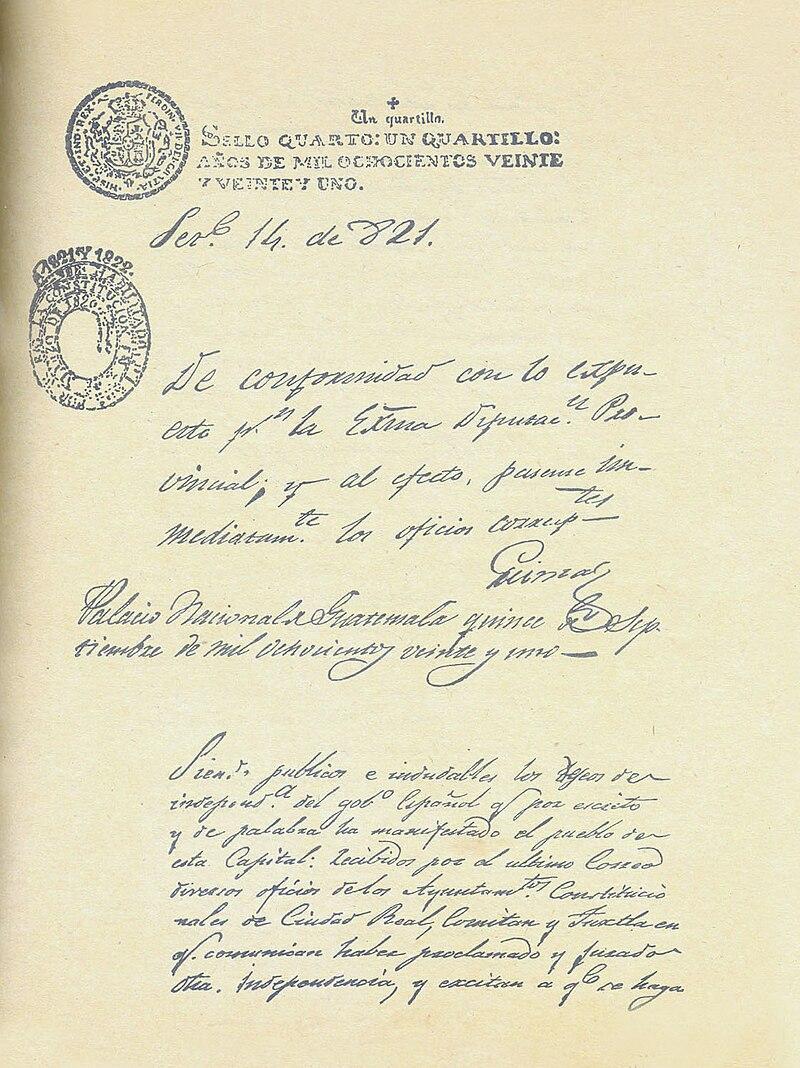 ✝
Un quartillo.
SELLO QUARTO: UN QUARTILLO:
AÑOS DE MIL OCHOCIENTOS VEINTE
Y VEINTE Y UNO.
HISP. ET IND. REX. FERDIN. VII. DEI GRATIA
14. de 821.
A 1821 Y 1822.
HABILITADO
CONSTITUCION
DE 1820.
De conformidad con lo expu-
esto pr. la Exma Diputac.n Pro-
vincial; y al efecto, pasense in-
mediatam.te los oficios corresp-tes
Palacio Nacional de Guatemala quince de Sep
tiembre de mil ochocientos veinte y uno—
Siend. publicos e indudables los deseos de
independ.a del gob.o Español q. por escrito
y de palabra ha manifestado el pueblo de
esta Capital: recibidos por el ultimo Correo
diversos oficios de los Ayuntam.tos Constitucio
nales de Ciudad Real, Comitan y Tuxtla en
q. comunican haber proclamado y jurado
dha. Independencia, y excitan a q.e se haga